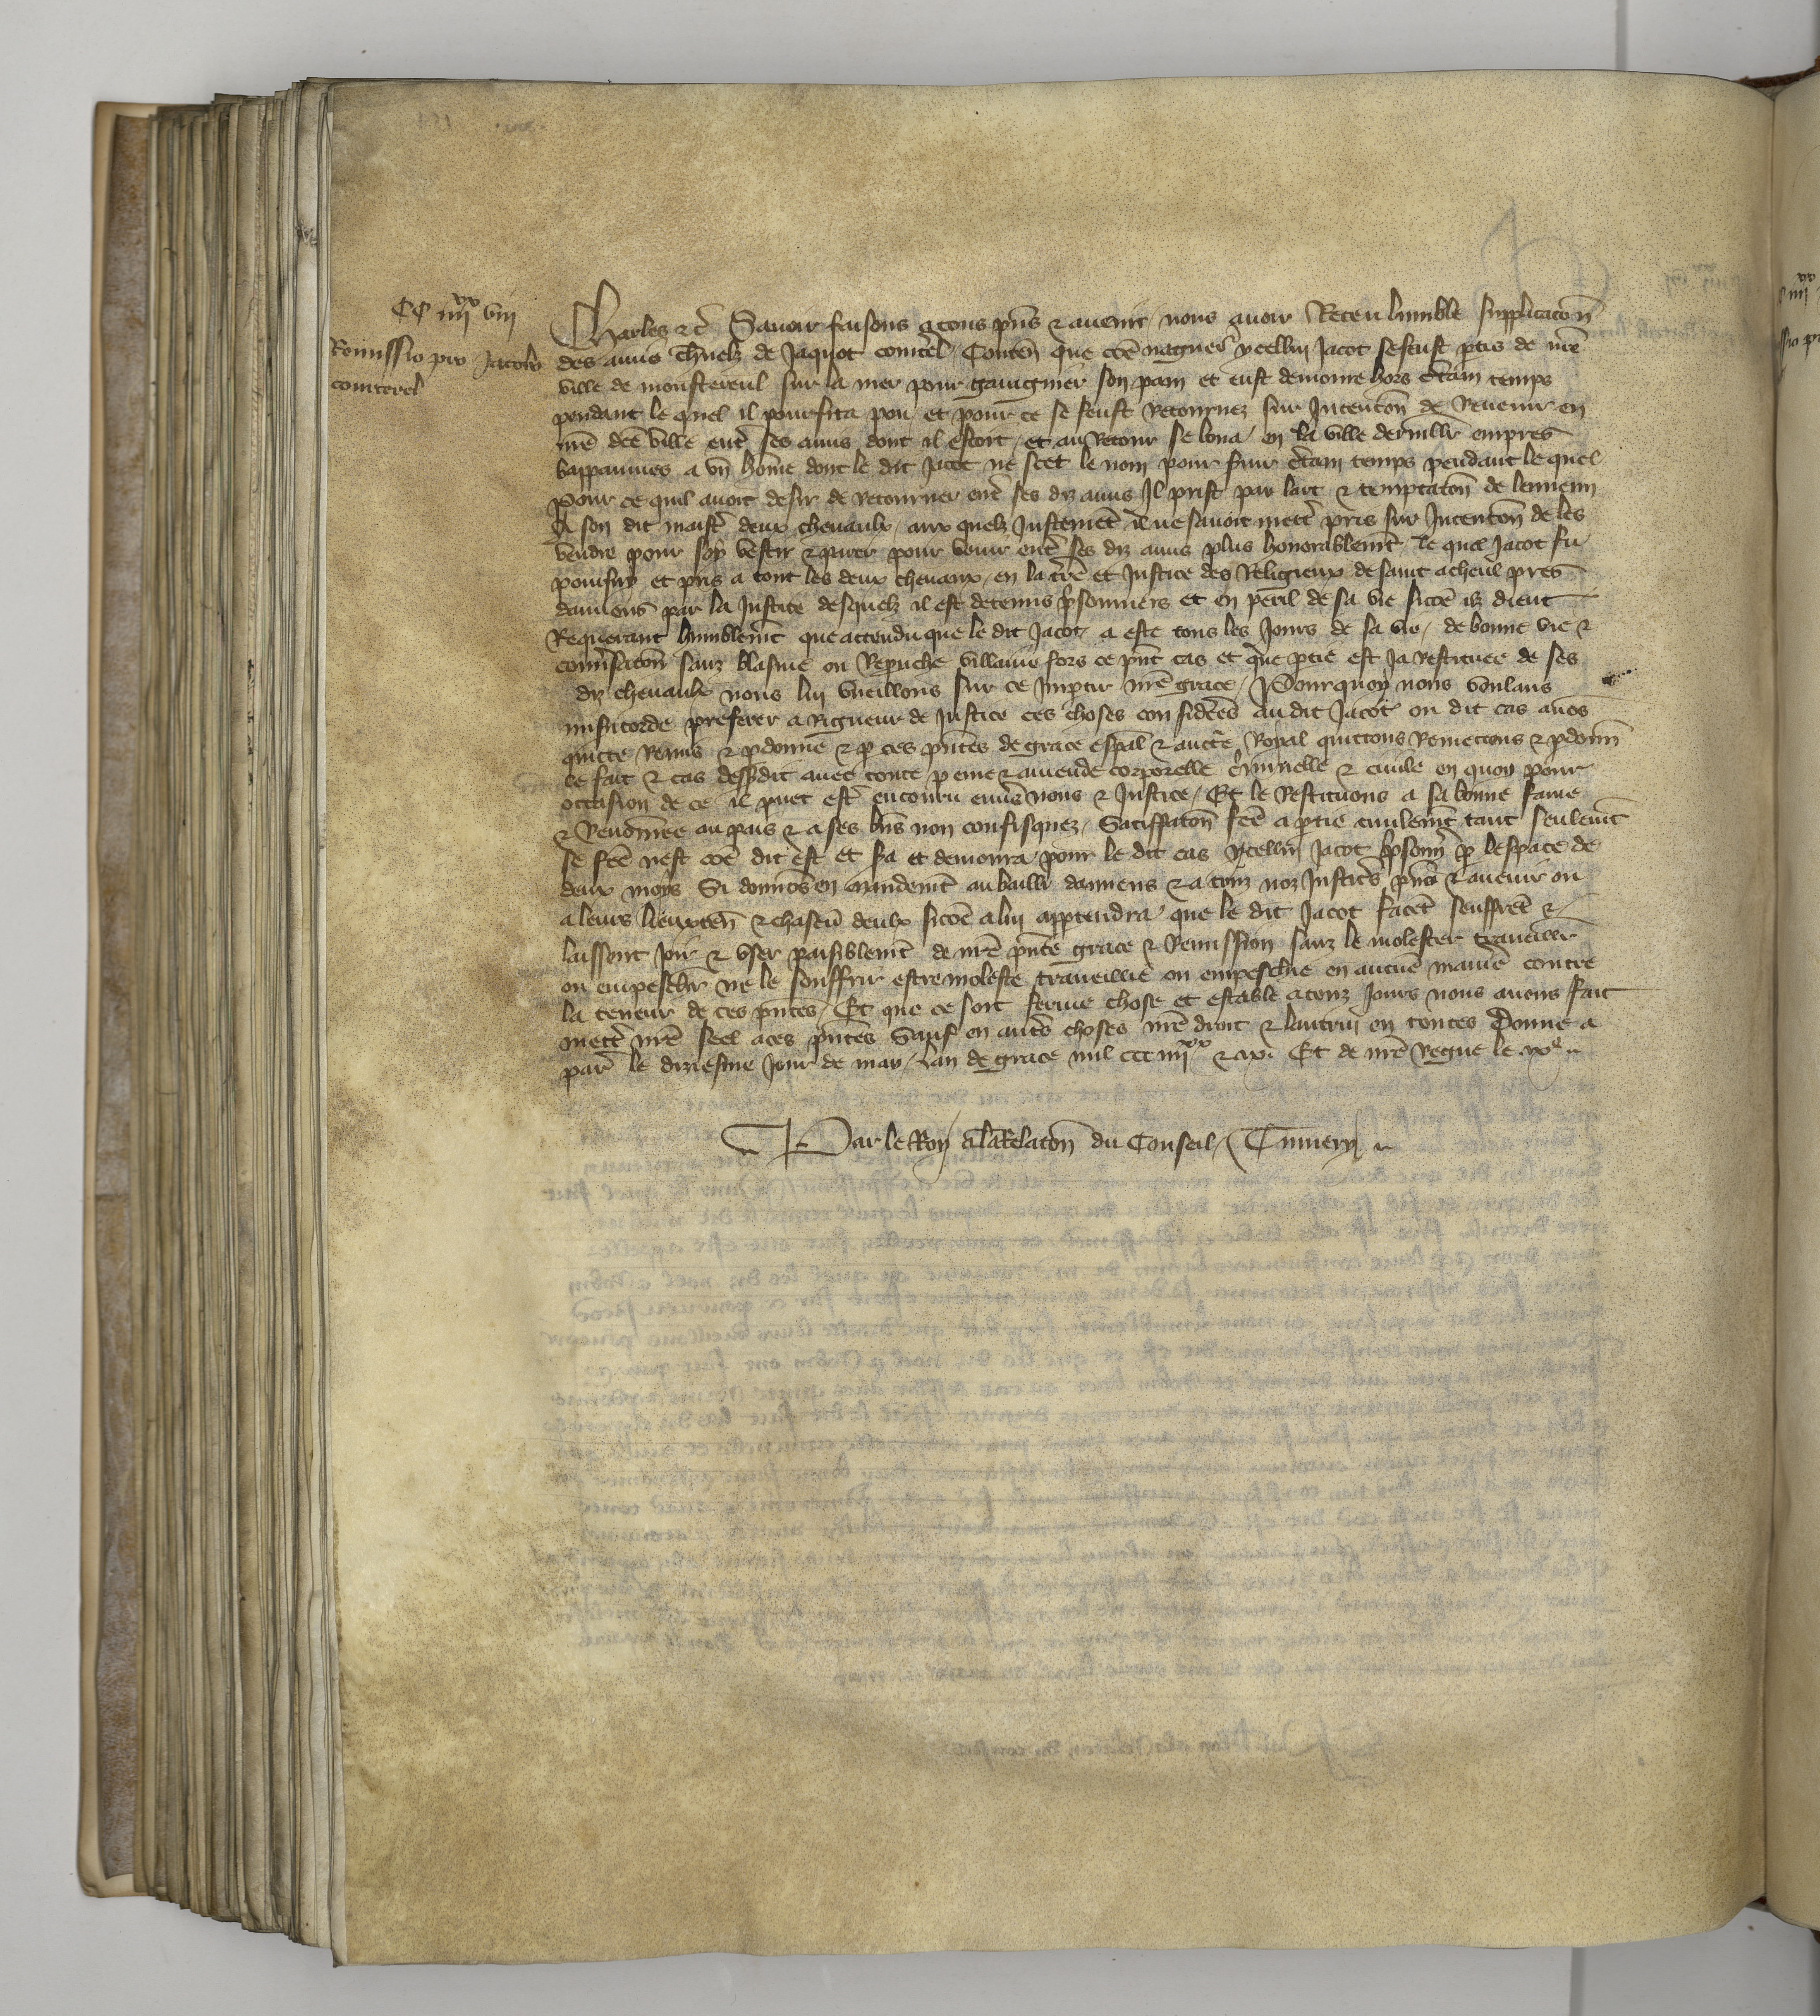 CC iiijxx viij
Remissio pro Jacobo
comterel
Charles etc̃ Savoir faisons a tous pñs & avenir / nous avoir Receu lumble supplicacon̄
des amis charnelz de Jaquot comterel / Conten̄ que cõe nagueres ycellui Jacot se feust ptis de nr̃e
ville de monstereul sur la mer pour gaaignier son pain et eust demoure hors certain temps
pendant le quel il pourfita pou / et pour ce se feust Retournez sur Jntencon̄ de Revenir en
nr̃e dc̃e ville entr̃ ses amis dont il estoit / et au Retour se loua en la ville dervillr̃ empres
bappaumes a un hom̃e dont le dit Jacot ne scet le nom pour servir certain temps pendant le quel
pour ce quil avoit desir de retourner entr̃ ses diz amis Jl prist par lart & temptacon̄ de lennemi
A son dit maistr̃ deux chevaulx / aux quelz Justemẽt il ne savoit mettr̃ pris sur Jntencon̄ de les
vendre pour soy vestir & parer pour venir entr̃ ses diz amis plus honorablemt̃ / le quel Jacot fu
poursuy et pris a tout les deux chevaux / en la terr̃e et Justice des Religieux de saint acheul pres
damiens par la Justice desquelz il est detenus prisonniers et en peril de sa vie sicõe ilz dient
Requerant humblemt̃ que attendu que le dit Jacot a este tous les Jours de sa vie / de bonne vie &
conv̾sacon̄ sanz blasme ou Repruche villaine fors ce pñt cas et que ptie est ja Restituee de ses
diz chevaulx nous lui vueillons sur ce Jmptir nr̃e grace / Pourquoy nous voulans
misericorde preferer a Rigueur de Justice ces choses considerees au dit Jacot ou dit cas avõs
quitte Remis & pdonne & p ces pñtes de grace esp̃al & auctr̃e Royal quittons Remettons & pdonñ
le fait & cas dessusdit avec toute peine & amende corporelle criminelle & civile en quoy pour
occasion de ce il puet estr̃ encouru env̾s nous & Justice / Et le Restituons a sa bonne fame
& Renom̃ee au pais & a ses bñs non confisquez / Satiffacon̄ fc̃e a ptie civilemt̃ tant seulemt̃
se fc̃e nest cõe dit est et sra et demourra pour le dit cas ycellui Jacot prisonñ p lespace de
deux moys Si donnõs en mandemt̃ au bailli damiens & a touz noz Justicrs̃ pñs & avenir ou
a leurs lieuxteñ & chascũ deulx sicõe a lui apptendra que le dit Jacot facet̃ seuffret̃ &
laissent joir & user paisiblemt̃ de nr̃e pñte grace & Remission sanz le molester travaillr̃
ou empeschr̃ ne le souffrir estre moleste travaillie ou empeschie en aucũe maniere contre
la teneur de ces pñtes / Et que ce soit ferme chose et estable a touz Jours nous avons fait
mettr̃ nr̃e seel a ces pñtes Sauf en autrs̃ choses nr̃e droit & lautrui en toutes Donne a
par̃ le diziesme Jour de may / Lan de grace mil ccc iiijxx & xi. Et de nr̃e Regne le xie
Par le Roy a la Relacon̄ du Conseil /